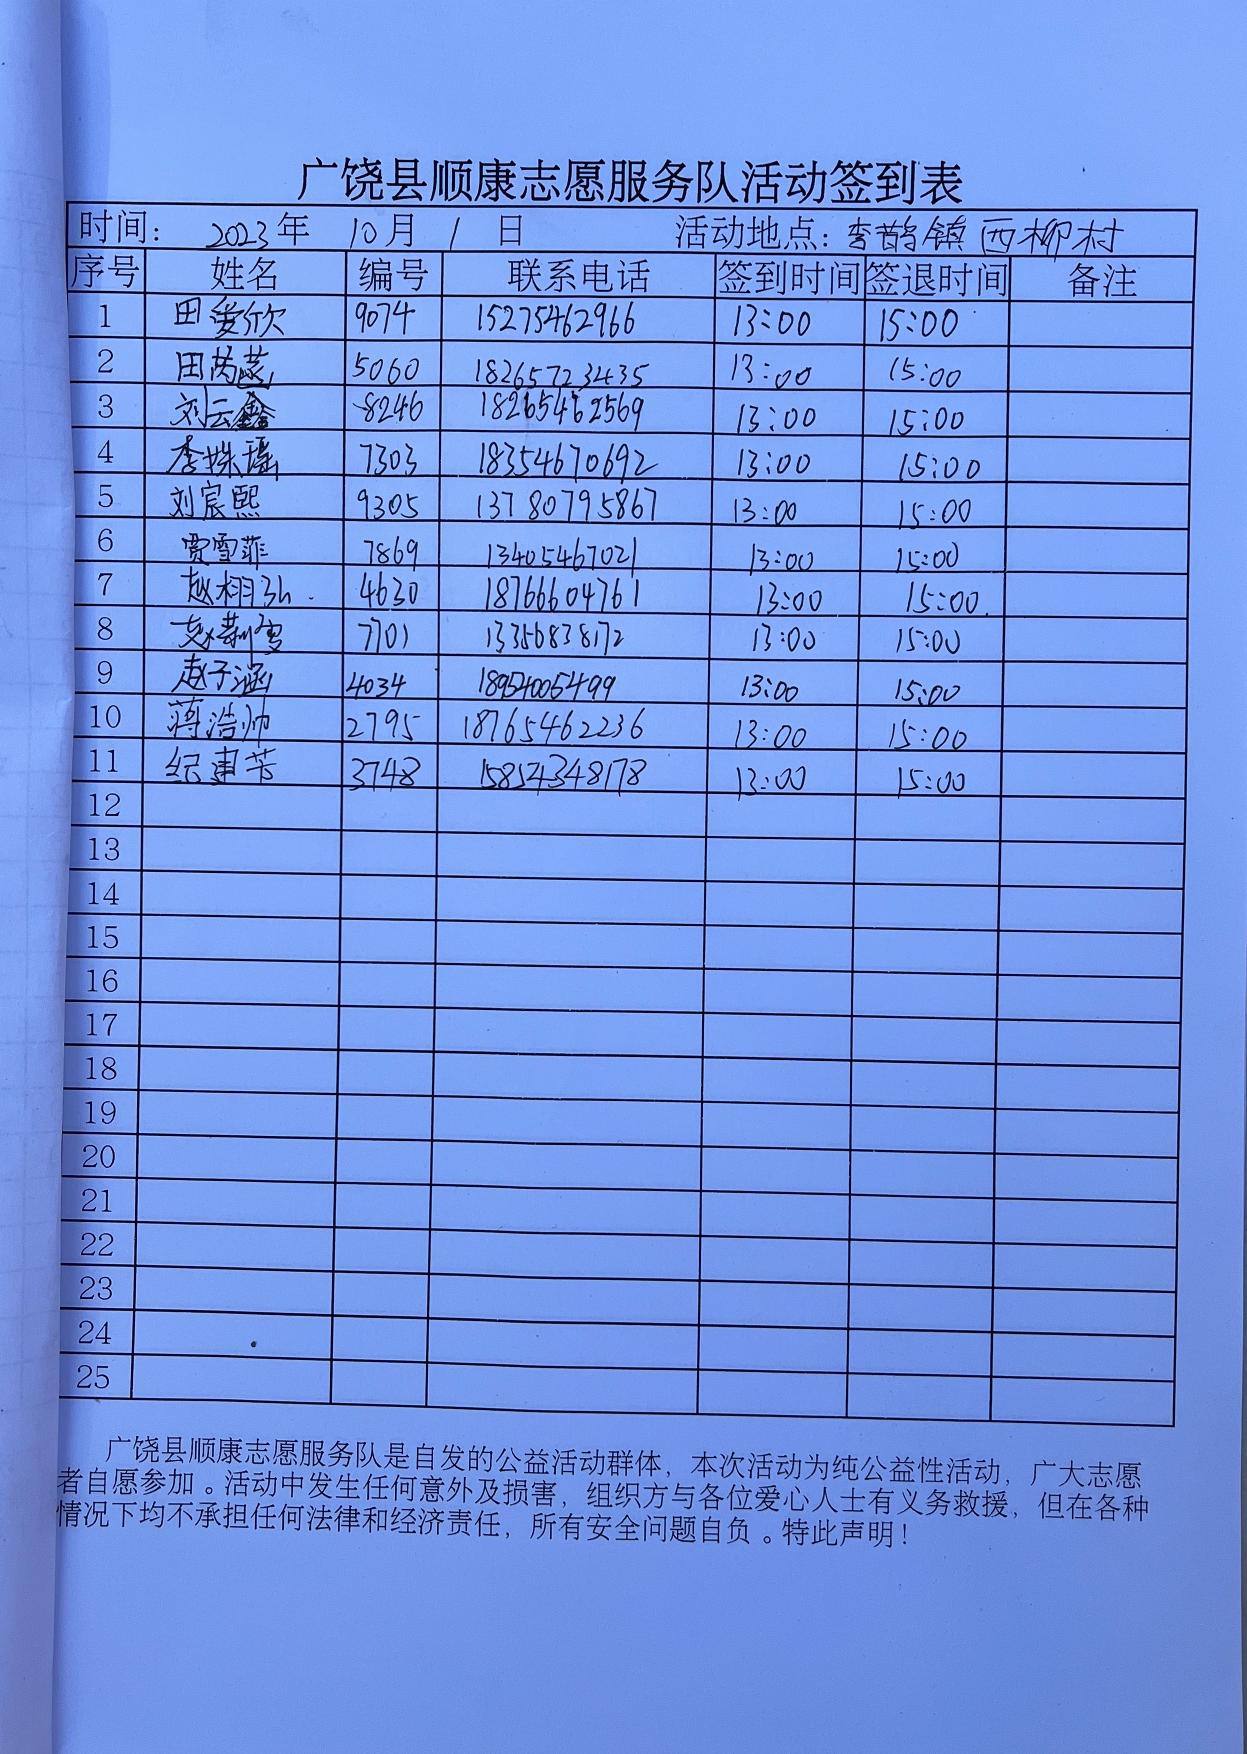 广饶县顺康志愿服务队活动签到表
时间: 2023年 10月 1 日 活动地点:李鹊镇西柳村
序号 姓名 编号 联系电话 签到时间 签退时间 备注
1 田爱欣 9074 15275462966 13:00 15:00
2 田芮蕊 5060 18265723435 13:00 15:00
3 刘云鑫 8246 18265462569 13:00 15:00
4 李姝瑶 7303 18354670692 13:00 15:00
5 刘宸熙 9305 13780795867 13:00 15:00
6 贾雪菲 7869 13405467021 13:00 15:00
7 赵栩弘 4630 18766604761 13:00 15:00
8 7701 13356838172 13:00 15:00
9 赵子涵 4034 18954005499 13:00 15:00
10 蒋浩帅 2795 18765462236 13:00 15:00
11 纪建芳 3748 15854348178 13:00 15:00
12
13
14
15
16
17
18
19
20
21
22
23
24
25
广饶县顺康志愿服务队是自发的公益活动群体,本次活动为纯公益性活动,广大志愿
者自愿参加。活动中发生任何意外及损害,组织方与各位爱心人士有义务救援,但在各种
情况下均不承担任何法律和经济责任,所有安全问题自负。特此声明!